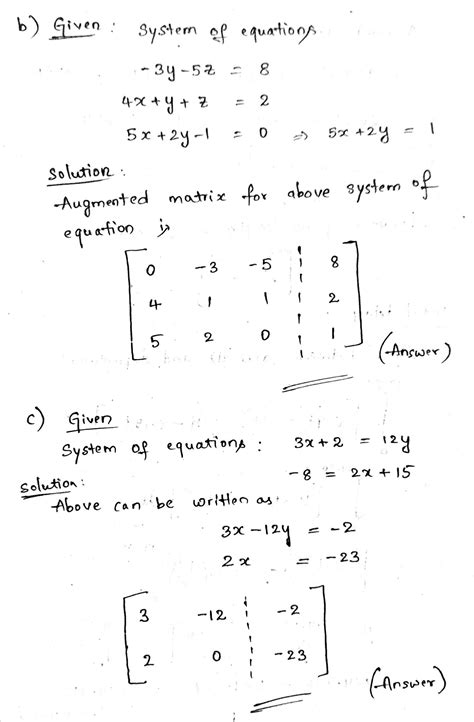 b) Given : System of equations.
-3y-5z = 8
4x+y+z = 2
5x+2y-1 = 0 ⇒ 5x+2y = 1
Solution :
Augmented matrix for above system of
equation is
0 -3 -5 8
4 1 1 2
5 2 0 1
(Answer)
c) Given
System of equations : 3x+2 = 12y
-8 = 2x+15
Solution:
Above can be written as.
3x-12y = -2
2x = -23
3 -12 -2
2 0 -23
(Answer)